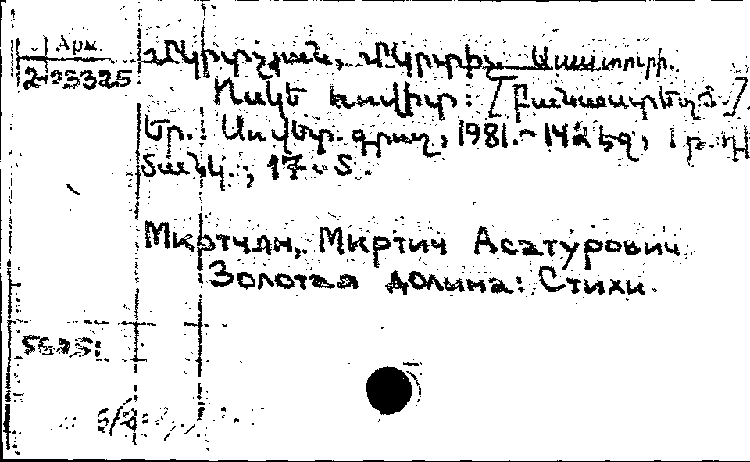 Арм.
2-93325
Մկրտչյան, Մկրտիչ Ասատուրի.
Ոսկե հովիտ: [Բանաստեղծ.].
Եր.: Սովետ. գրող, 1981.- 142 էջ, 1 թ. դի
մանկ.; 17 ս.
Мкртчян, Мкртич Асатурович
Золотая долина: Стихи.